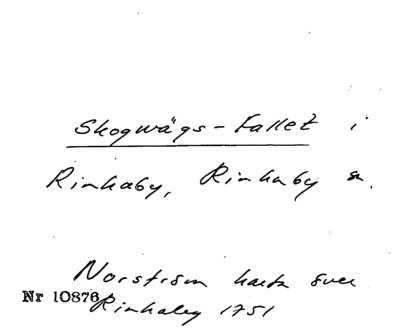 Skogwägs-Fallet i
Rinkaby, Rinkaby sn.
Norström karta över
Nr 10876
Rinkaby 1751